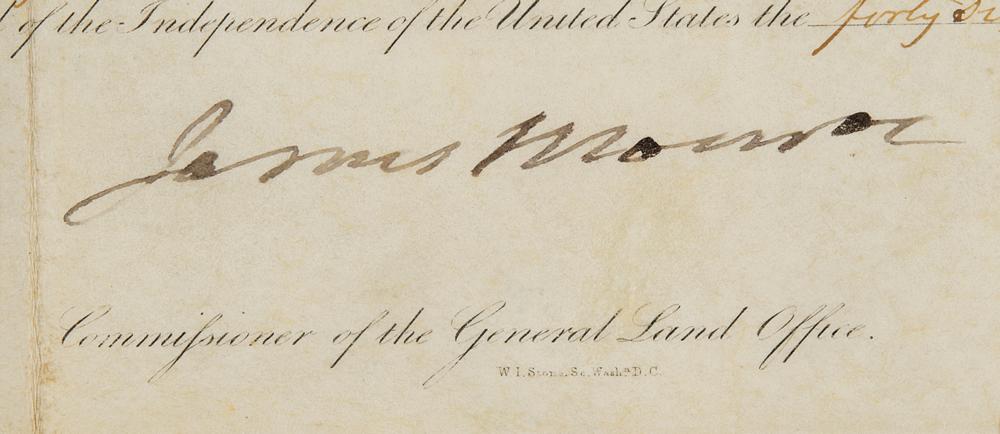 of the Independence of the United States the forty si
James Monroe
Commissioner of the General Land Office.
W. I. Stone, Sc. Washn. D.C.